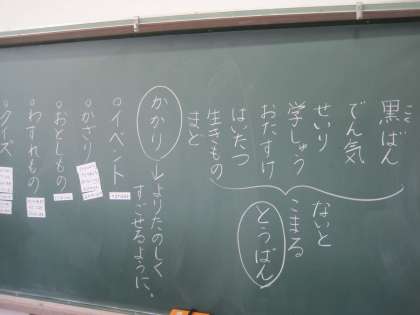 黒ばん
でん気
せいり
学しゅう
おたすけ
はいたつ
生きもの
まど
ないと
こまる
とうばん
かかり
→よりたのしく
すごせるように。
○イベント
○かざり
○おとしもの
○わすれもの
○クイズ